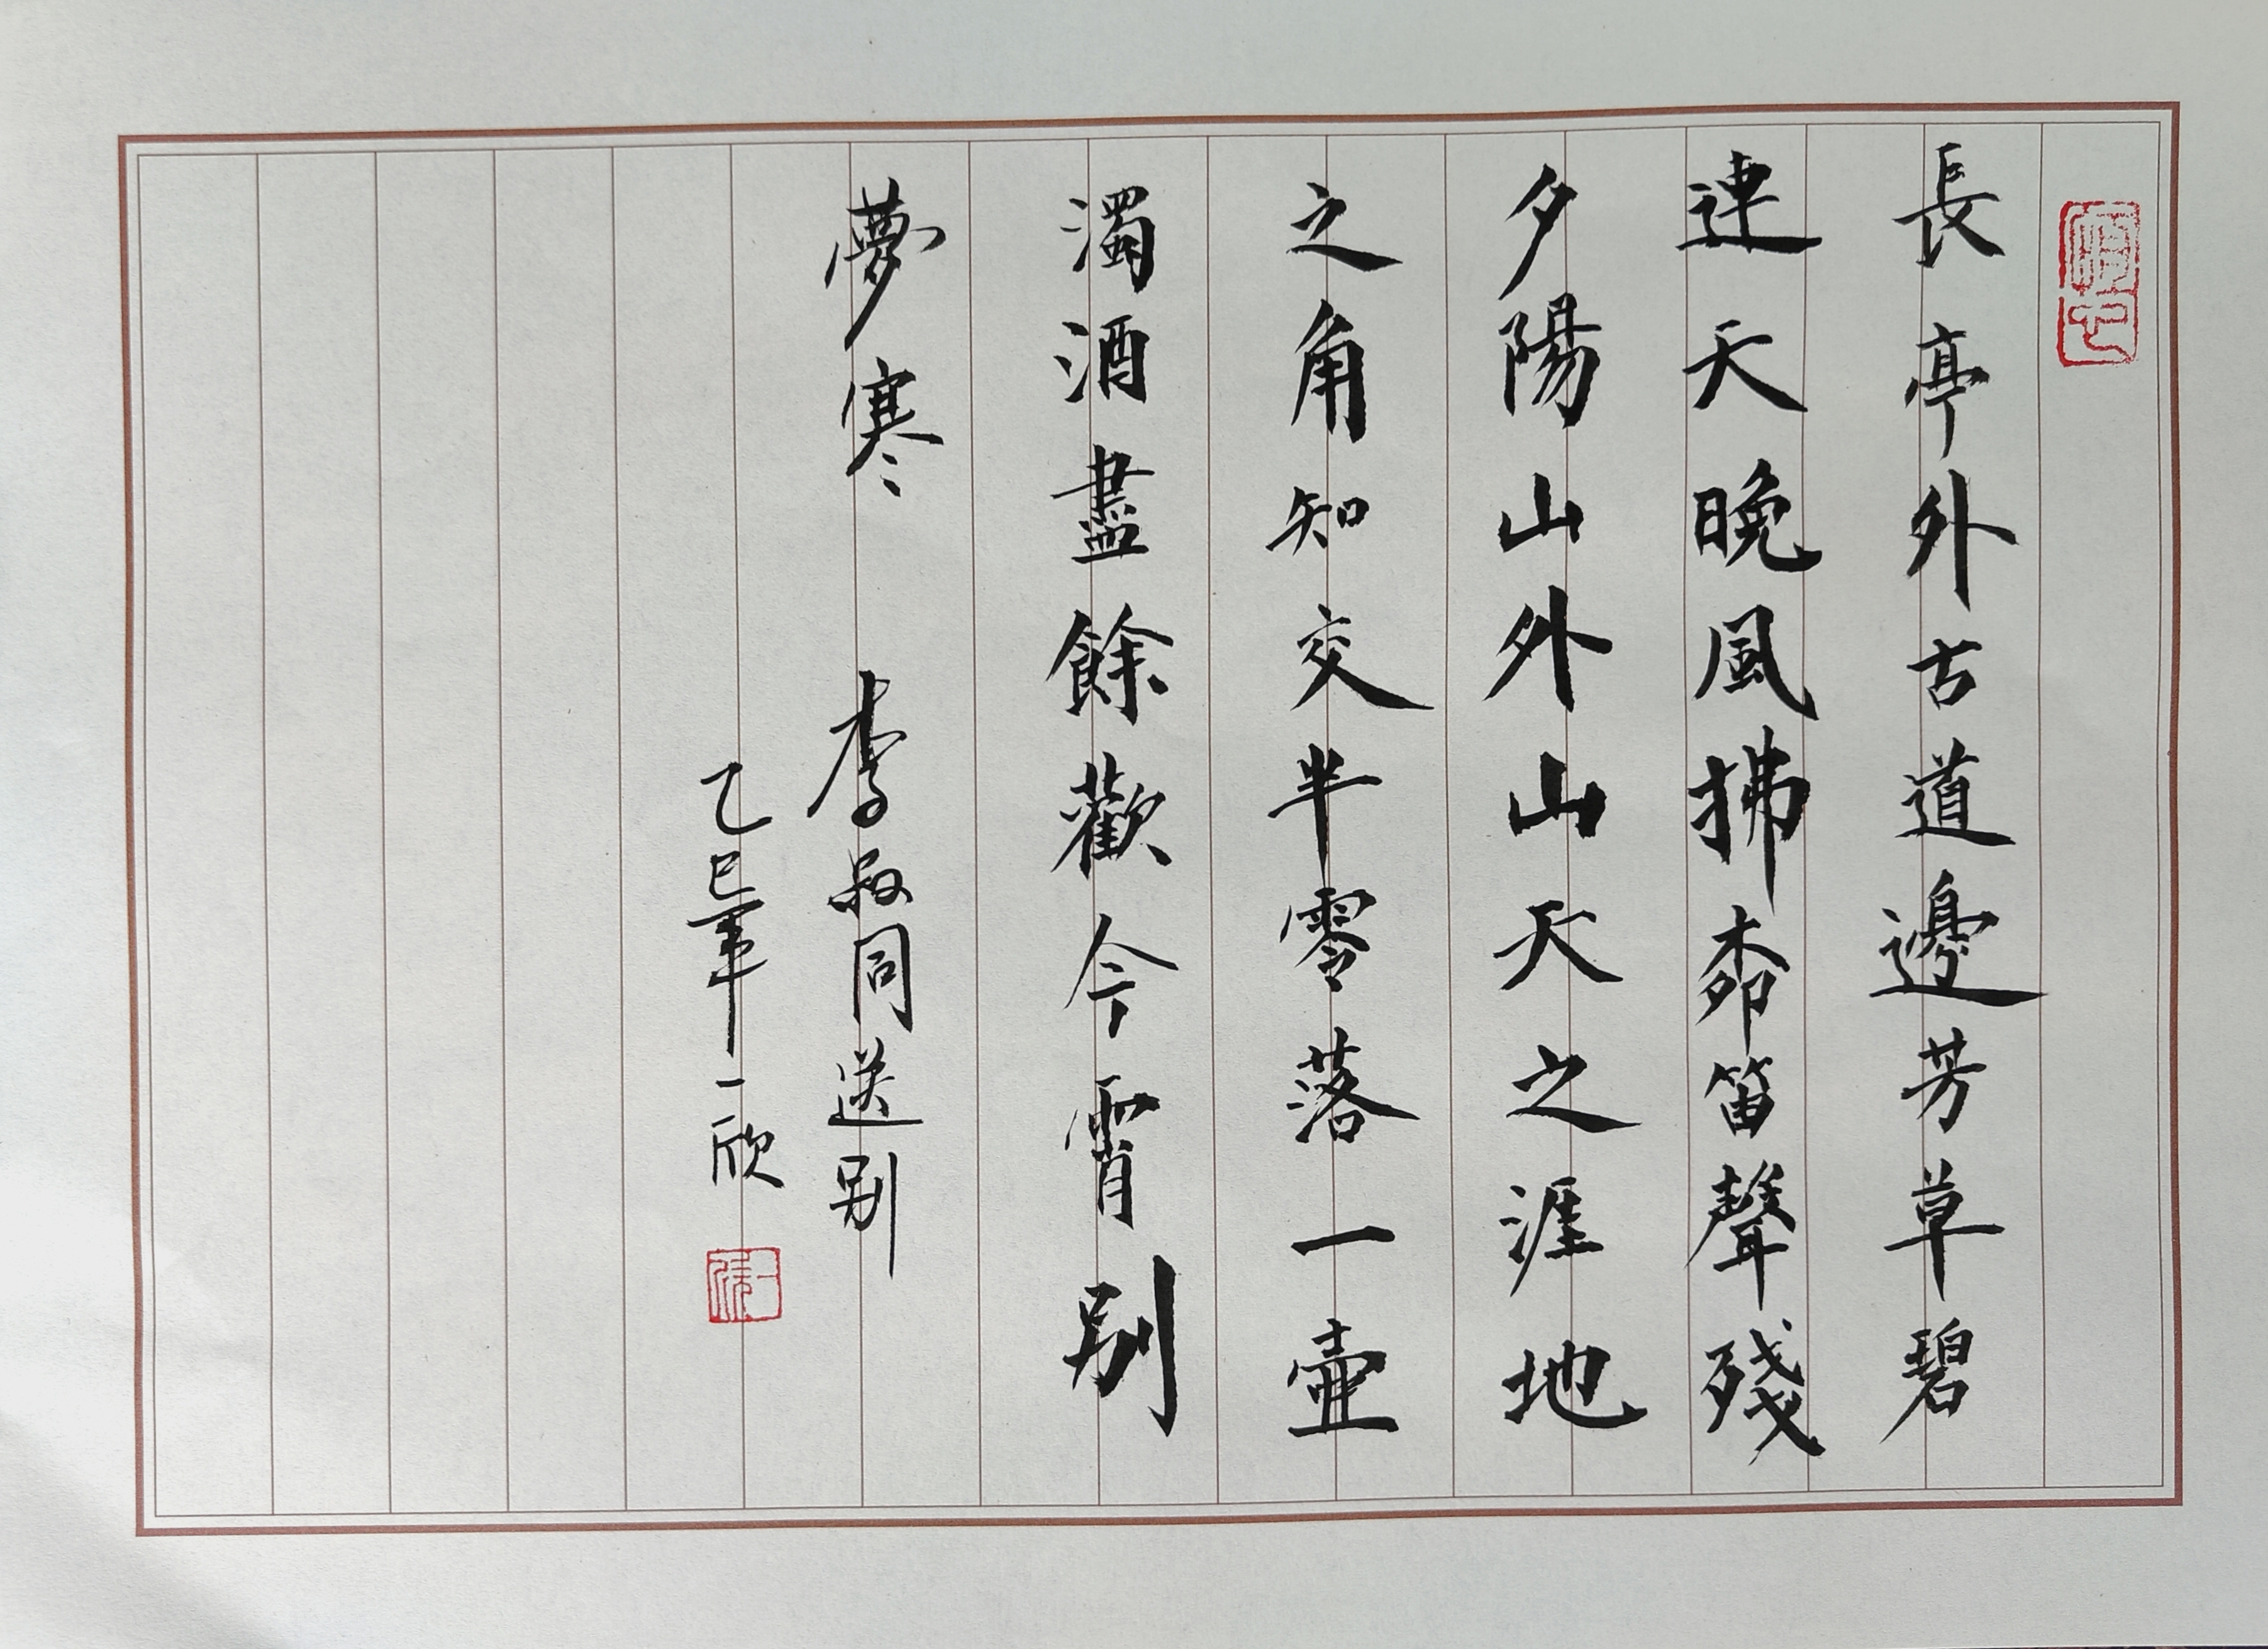 長亭外古道邊芳草碧
連天晚風拂柳笛聲殘
夕陽山外山天之涯地
之角知交半零落一壺
濁酒盡餘歡今霄别
夢寒 李叔同送别
乙巳年一欣